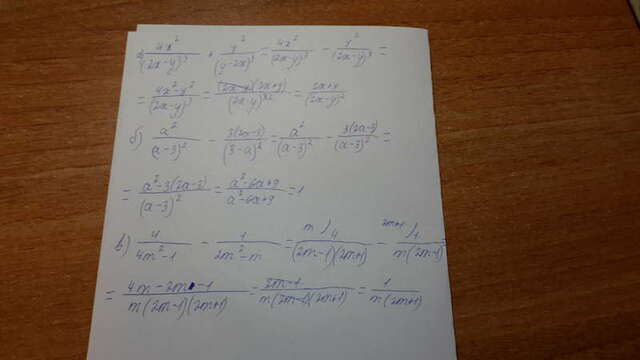 а) 4x²/(2x-y)³ + y²/(y-2x)³ = 4x²/(2x-y)³ - y²/(2x-y)³ =
= (4x²-y²)/(2x-y)³ = (2x-y)(2x+y)/(2x-y)³² = (2x+y)/(2x-y)²
б) a²/(a-3)² - 3(2a-3)/(3-a)² = a²/(a-3)² - 3(2a-3)/(a-3)² =
= (a²-3(2a-3))/(a-3)² = (a²-6a+9)/(a²-6a+9) = 1
в) 4/(4m²-1) - 1/(2m²-m) = m/ 4/(2m-1)(2m+1) - 2m+1/ 1/m(2m-1)
= (4m-2m-1)/m(2m-1)(2m+1) = (2m-1)/m(2m-1)(2m+1) = 1/m(2m+1)